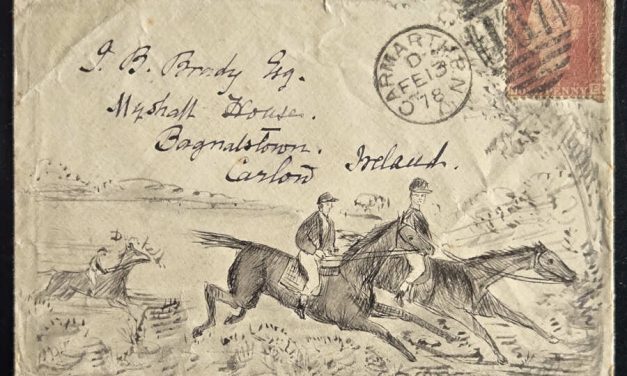 J. B. Brady Esq.
Myshall House.
Bagnalstown.
Carlow Ireland.
CARMARTHEN
D
FE 13
78
PENNY